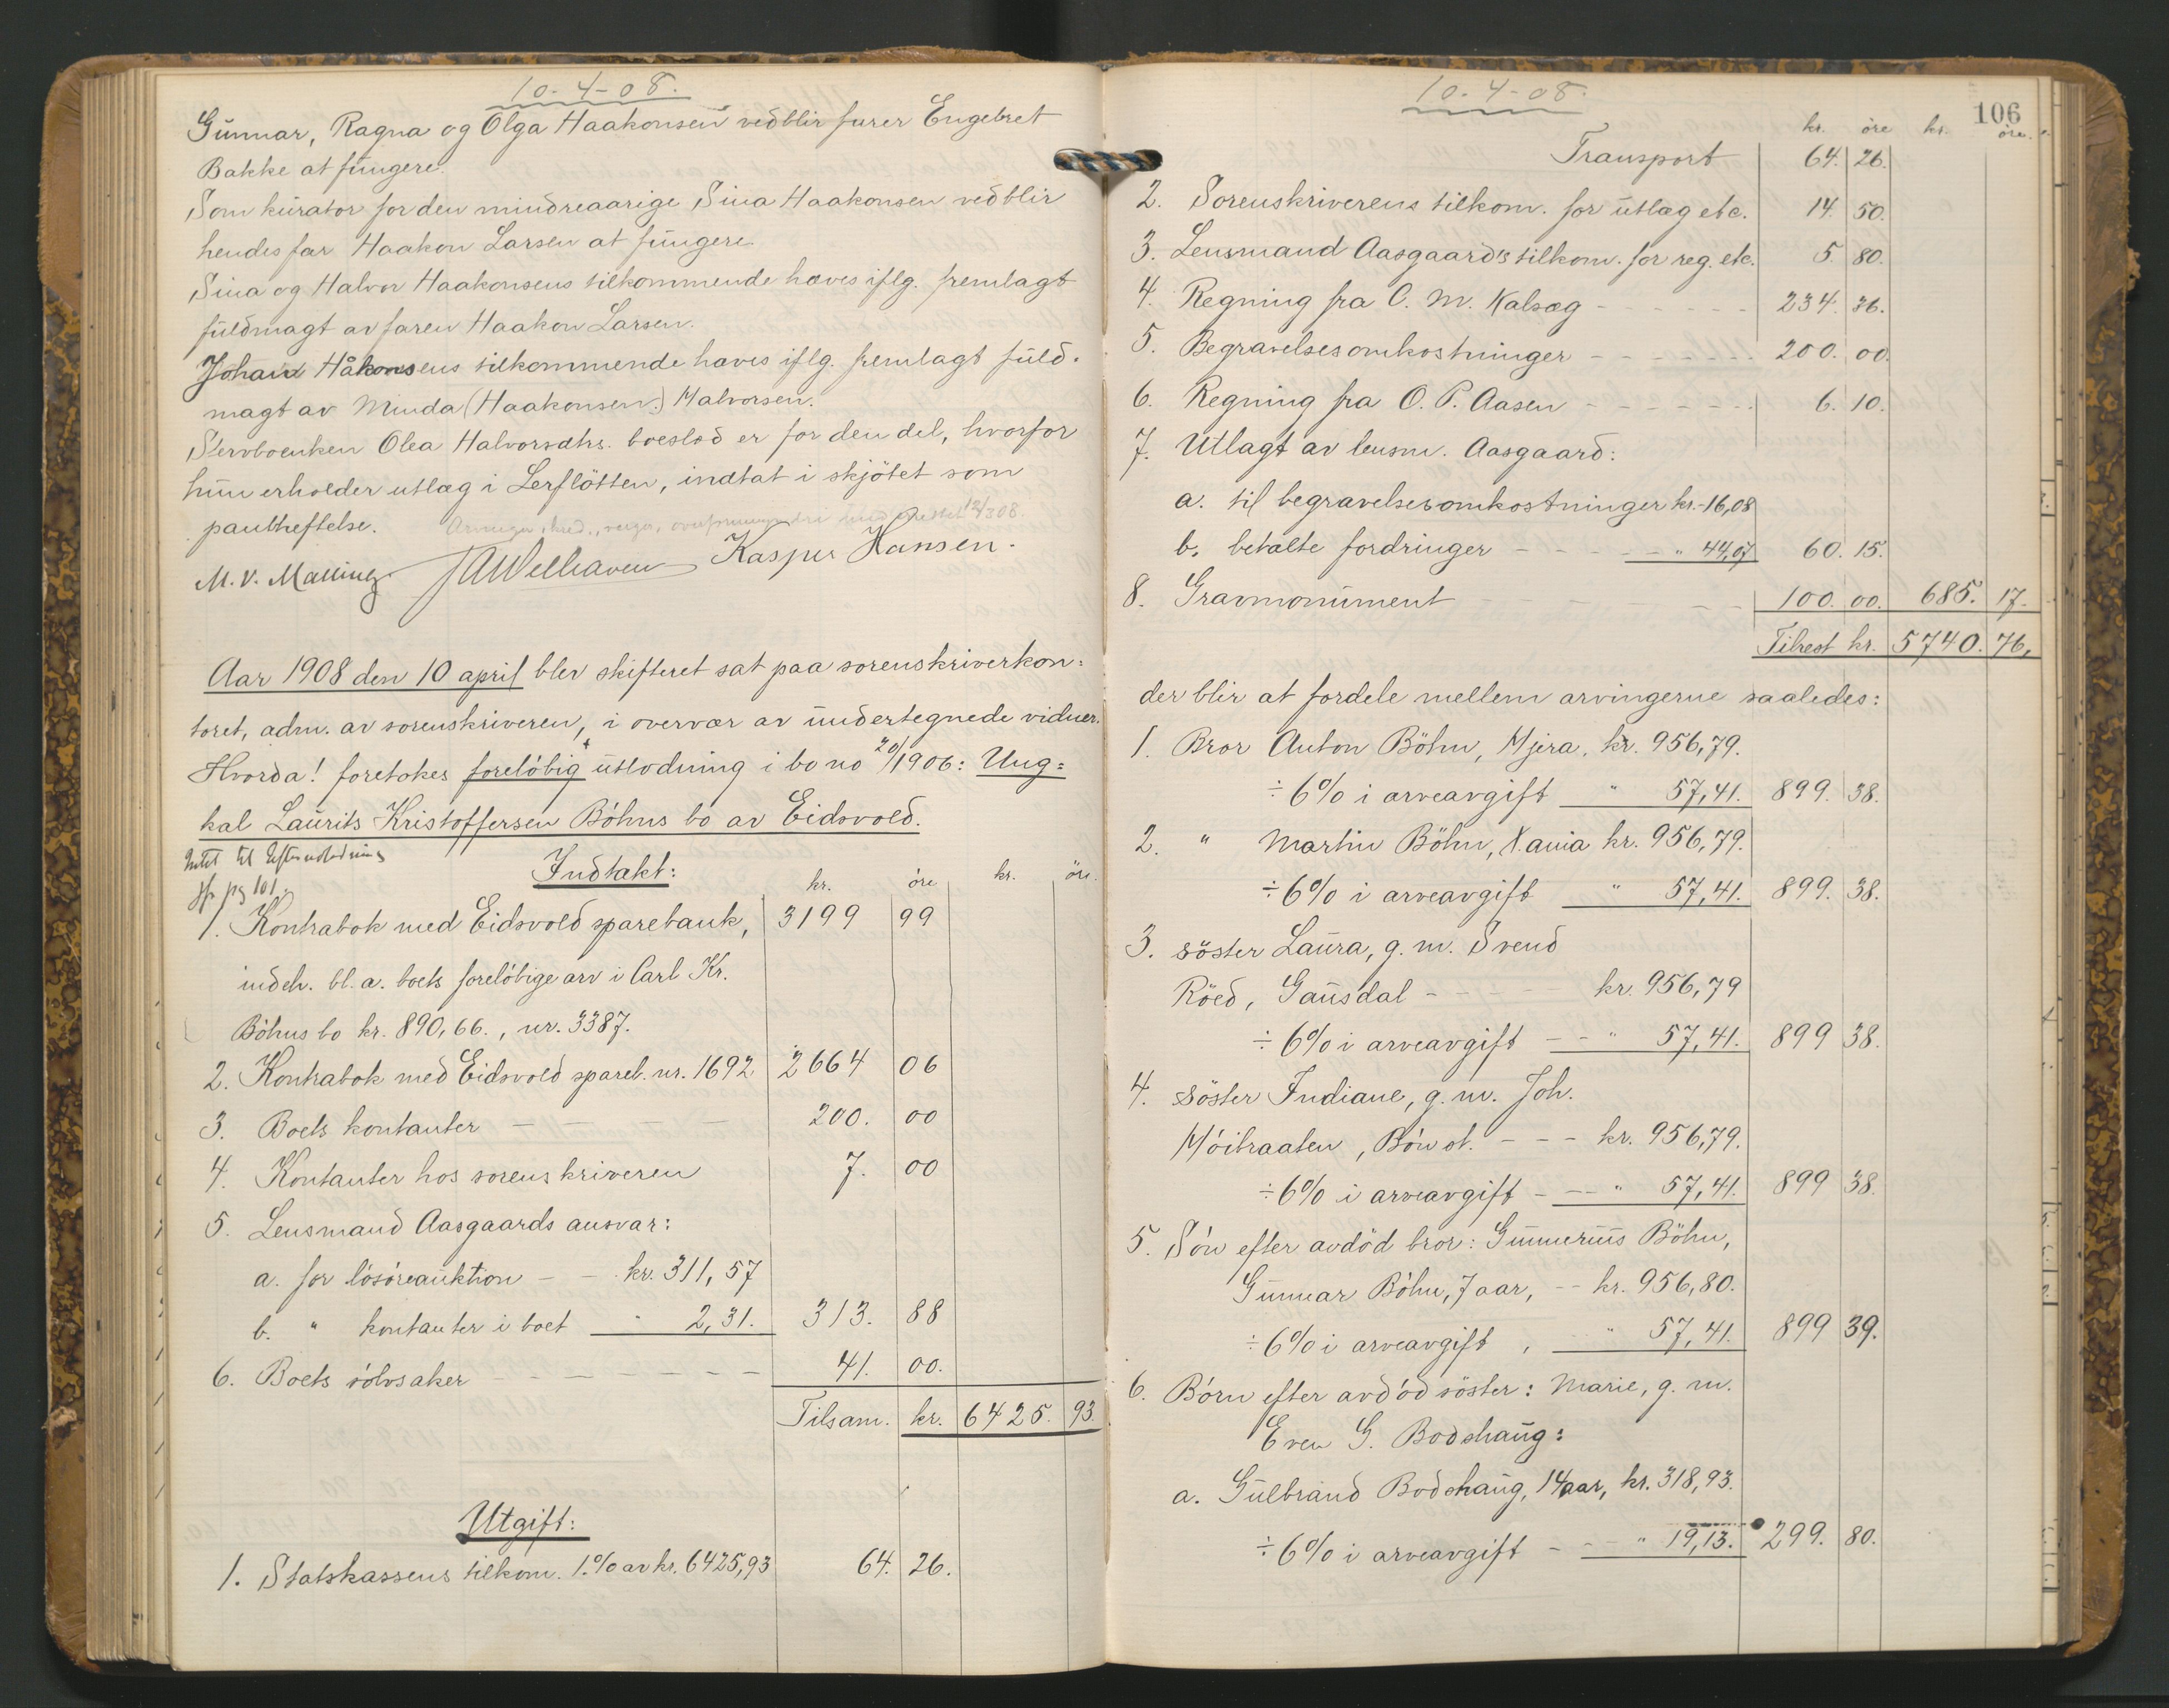 10-4-08.
Gunnar, Ragna og Olga Haakonsen vedblir furer Engebret
Bakke at fungere.
Som kurator for den mindreaarige Sina Haakonsen vedblir
hendes far Haakon Larsen at fungere
Sina og Halvor Haakonsens tilkommende hæves iflg. fremlagt
fuldmagt av faren Haakon Larsen.
Johan Håkonsens tilkommende hæves iflg. fremlagt fuld-
magt av Minda (Haakonsen) Halvorsen.
Stervboenken Olea Halvorsdtrs. boeslod er for den del, hvorfor
hun erholder utlæg i Lerflötten, indtat i skjötet som
pantheftelse.
M. V. Malling. JAWelhaven Kasper Hansen.
Aar 1908 den 10 april blev skifteret sat paa sorenskriverkon=
toret, adm. av sorenskriveren, i overvær av undertegnede vidner.
Hvorda! foretokes forelöbig utlodning i bo no 20/1906: Ung=
kal Laurits Kristoffersen Böhns bo av Eidsvold.
Intet til Efterutlodning
jfr pg 101.
Indtækt: kr. öre kr. öre.
1. Kontrabok med Eidsvold sparebank, 3199 99
indeh. bl. a. boets forelöbige arv i Carl Kr.
Böhns bo kr. 890,66., nr. 3387.
2. Kontrabok med Eidsvold spareb. nr. 1692 2664 06
3. Boets kontanter 200. 00
4. Kontanter hos sorenskriveren 7. 00
5. Lensmand Aasgaards ansvar:
a. for lösöreauktion kr. 311,57
b. " kontanter i boet " 2,31. 313. 88
6. Boets sölvsaker 41. 00.
Tilsam. kr. 6425. 93.
Utgift:
1. Statskassens tilkom. 1% av kr. 6425,93 64. 26.
10-4-08.
106
kr. öre kr. öre.
Transport 64. 26.
2. Sorenskriverens tilkom. for utlæg etc. 14. 50.
3. Lensmand Aasgaard's tilkom. for reg. etc. 5. 80.
4. Regning fra O. M. Kalsæg 234. 36.
5. Begravelsesomkostninger 200. 00
6. Regning fra O. P. Aasen 6. 10.
7. Utlagt av lensm. Aasgaard:
a. til begravelsesomkostninger kr. 16,08
b. betalte fordringer " 44,07 60. 15.
8. Gravmonument 100. 00. 685. 17.
Tilrest kr. 5740. 76.
der blir at fordele mellem arvingerne saaledes:
1. Bror Anton Böhn, Mjera, kr. 956,79.
÷ 6% i arveavgift " 57,41. 899. 38.
2. " Martin Böhn, X.ania kr. 956,79.
÷ 6% i arveavgift " 57,41. 899. 38.
3. söster Laura, g. m. Svend
Röed, Gausdal kr. 956,79
÷ 6% i arveavgift " 57,41. 899 38.
4. söster Indiane, g. m. Joh.
Möitraaten, Bön st. kr. 956,79.
÷ 6% i arveavgift " 57,41. 899 38.
5. Sön efter avdöd bror: Gunnerius Böhn,
Gunnar Böhn, 7 aar, kr. 956,80.
÷ 6% i arveavgift, " 57,41. 899 39.
6. Börn efter avdöd söster: Marie, g. m.
Even G. Bodshaug:
a. Gulbrand Bodshaug, 14 aar, kr. 318,93.
÷ 6% i arveavgift " 19,13. 299. 80.